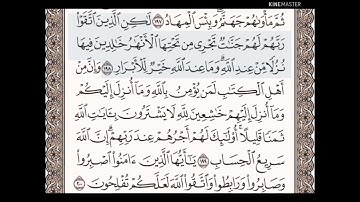 KINEMASTER
ثُمَّ مَأْوَىٰهُمْ جَهَنَّمُ وَبِئْسَ ٱلْمِهَادُ ١٩٧ لَٰكِنِ ٱلَّذِينَ ٱتَّقَوْا۟
رَبَّهُمْ لَهُمْ جَنَّٰتٌ تَجْرِى مِن تَحْتِهَا ٱلْأَنْهَٰرُ خَٰلِدِينَ فِيهَا
نُزُلًا مِّنْ عِندِ ٱللَّهِ وَمَا عِندَ ٱللَّهِ خَيْرٌ لِّلْأَبْرَارِ ١٩٨ وَإِنَّ مِنْ
أَهْلِ ٱلْكِتَٰبِ لَمَن يُؤْمِنُ بِٱللَّهِ وَمَآ أُنزِلَ إِلَيْكُمْ
وَمَآ أُنزِلَ إِلَيْهِمْ خَٰشِعِينَ لِلَّهِ لَا يَشْتَرُونَ بِـَٔايَٰتِ ٱللَّهِ
ثَمَنًا قَلِيلًا أُو۟لَٰٓئِكَ لَهُمْ أَجْرُهُمْ عِندَ رَبِّهِمْ إِنَّ ٱللَّهَ
سَرِيعُ ٱلْحِسَابِ ١٩٩ يَٰٓأَيُّهَا ٱلَّذِينَ ءَامَنُوا۟ ٱصْبِرُوا۟
وَصَابِرُوا۟ وَرَابِطُوا۟ وَٱتَّقُوا۟ ٱللَّهَ لَعَلَّكُمْ تُفْلِحُونَ ٢٠٠